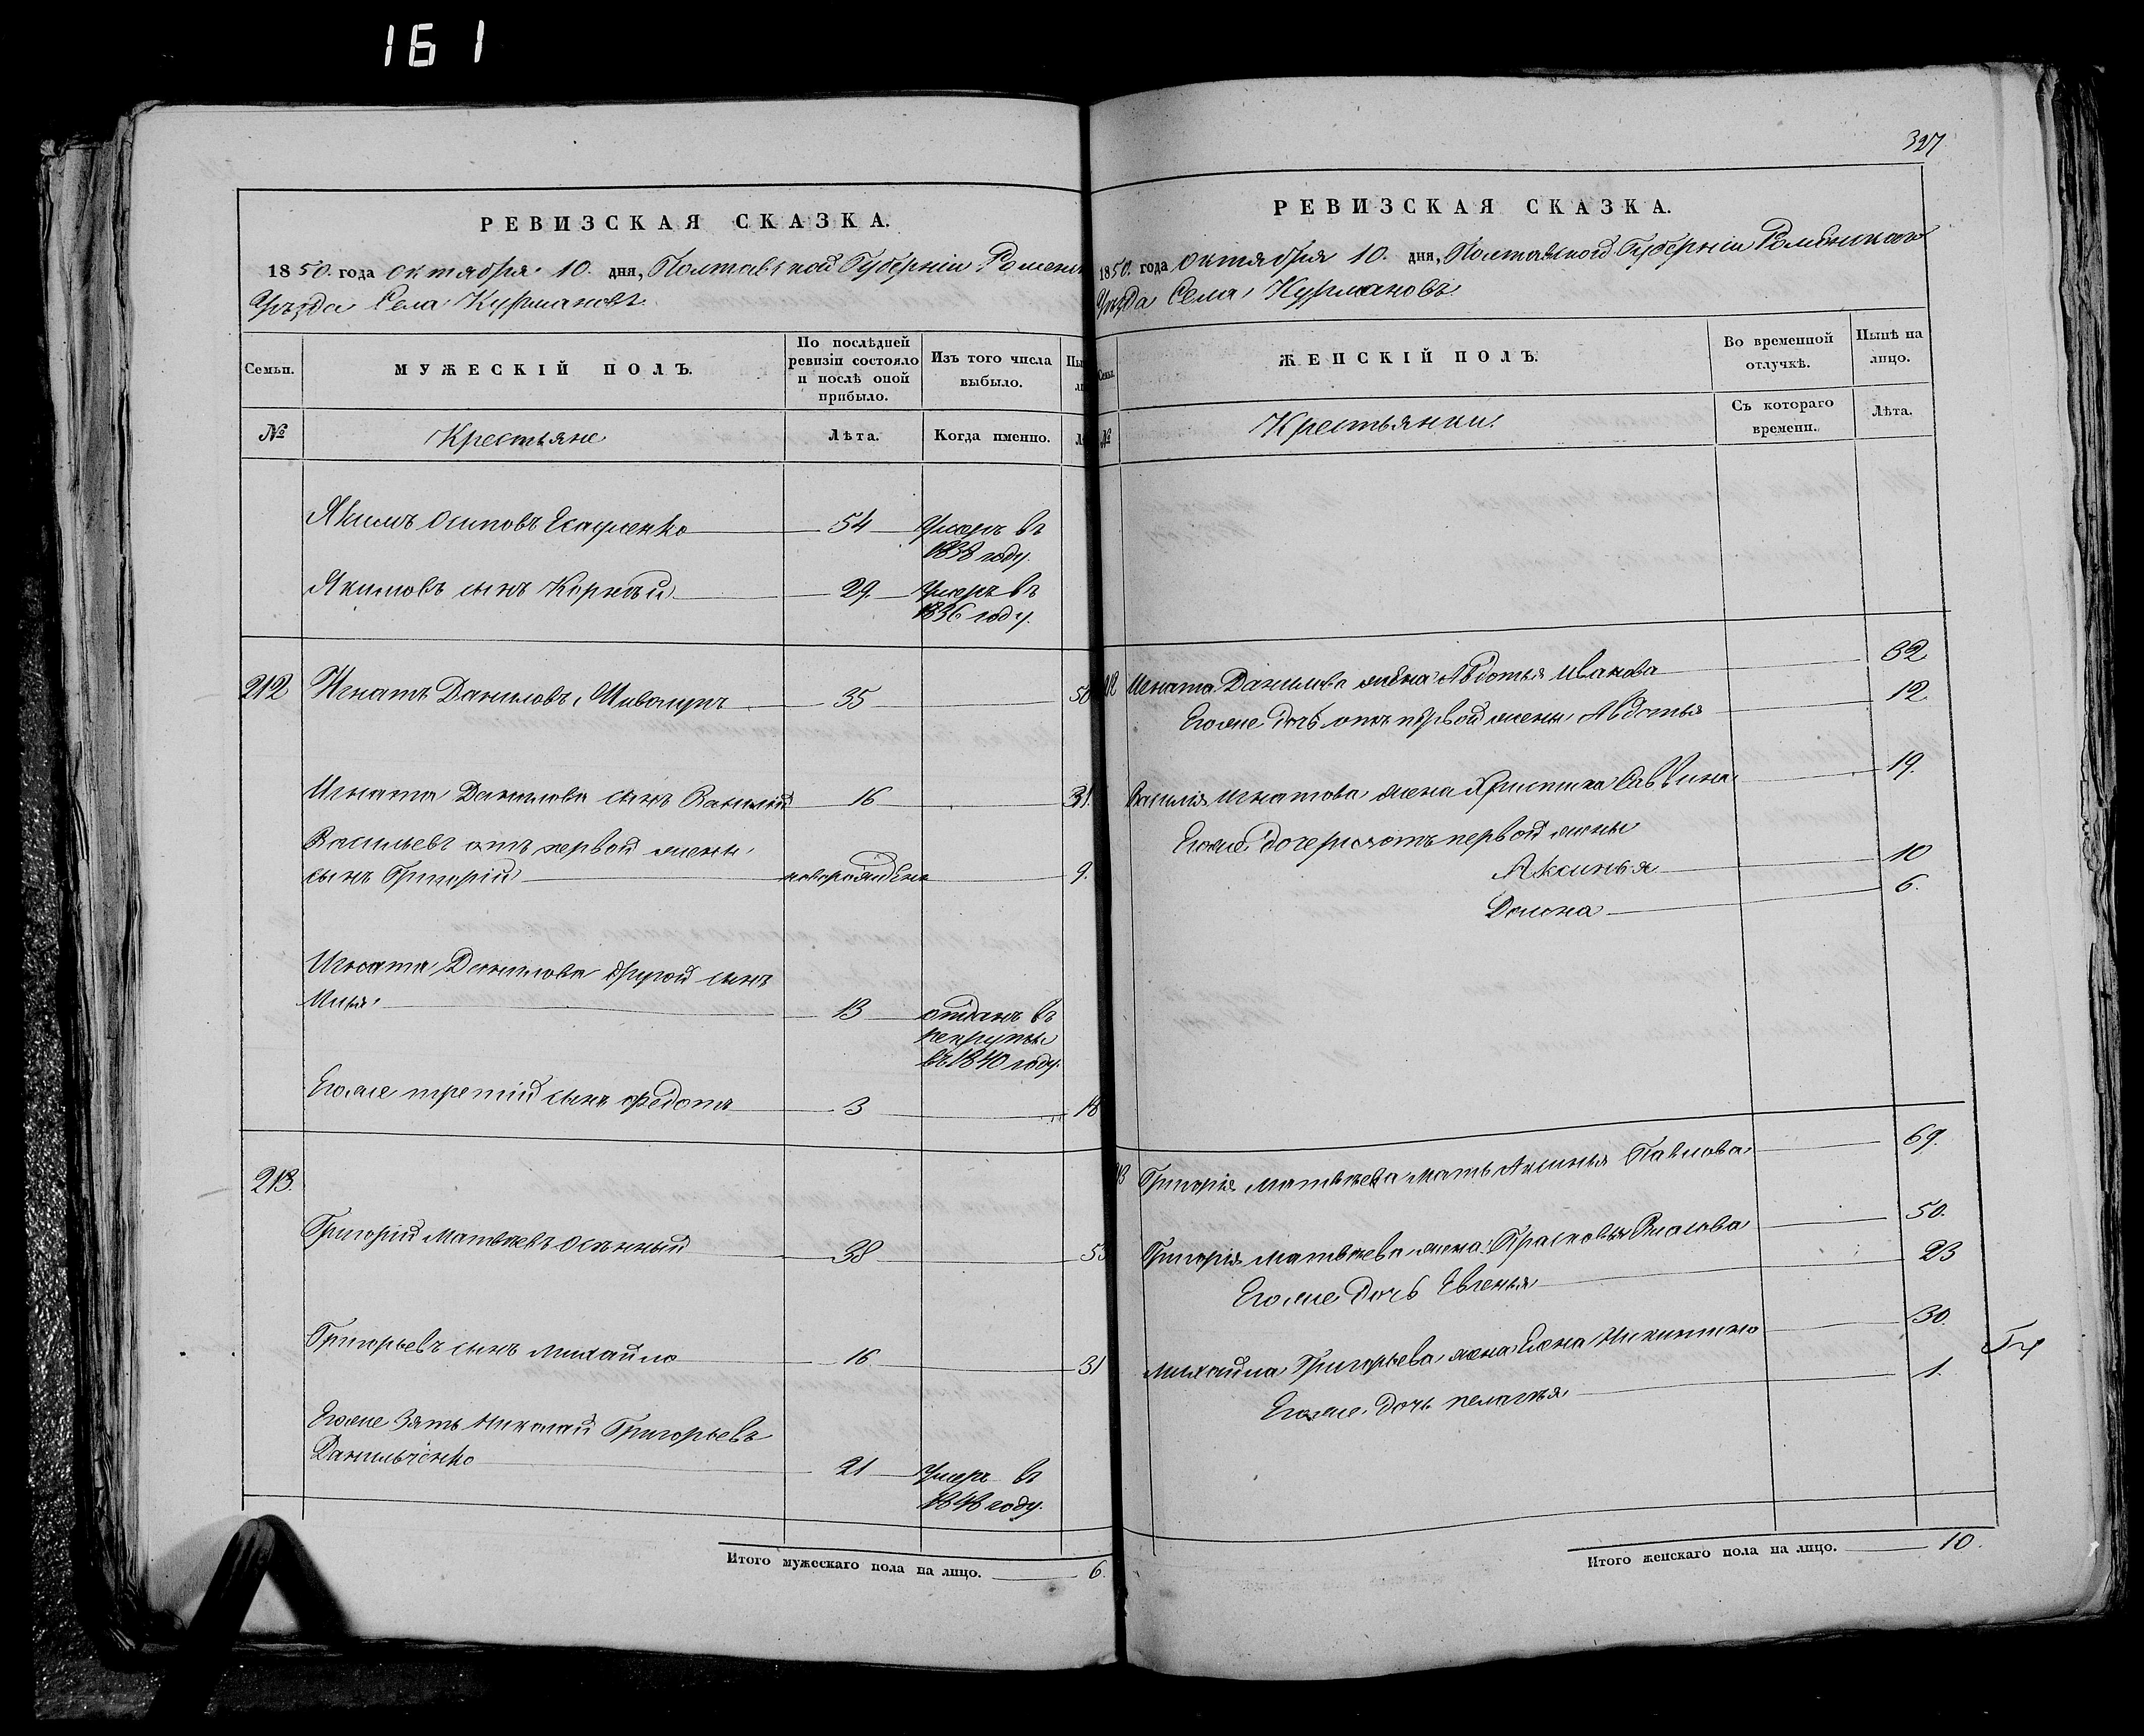 161
РЕВИЗСКАЯ СКАЗКА.
1850. года октября 10. дня, Полтавской Губерніи Роменск
Уѣзда Села Курмановъ
Семьи.
МУЖЕСКІЙ ПОЛЪ.
По послѣдней ревизіи состояло и послѣ оной прибыло.
Изъ того числа выбыло.
№
Крестьяне
Лѣта.
Когда именно.
Якимъ Осиповъ 54 Умеръ въ
1838 году.
Якимовъ сынъ Корнѣй 29. Умеръ въ
1836 году.
212 Игнатъ Даниловъ 35 50
Игната Данилова сынъ Василій 16 31.
Васильевъ отъ первой жены
сынъ Григорій новорожденъ 9.
Игната Данилова другой сынъ
Илья 13 отданъ въ
рекруты
въ 1840 году.
Егоже третій сынъ Федотъ 3 18
213.
Григорій Матвѣевъ Осѣнный 38 53
Григорьевъ сынъ Михайло 16 31
Егоже зять Николай Григорьевъ
Данильченко 21 Умеръ въ
1848 году.
Итого мужескаго пола на лицо. 6.
327
РЕВИЗСКАЯ СКАЗКА.
1850. года Октября 10. дня, Полтавской Губерніи Роменскаго
Уѣзда Села Курмановъ.
Семьи.
ЖЕНСКІЙ ПОЛЪ.
Во временной отлучкѣ.
Нынѣ на лицо.
№
Крестьянки.
Съ котораго времени.
Лѣта.
212 Игната Данилова жена Авдотья Иванова 32
Егоже дочь отъ первой жены Авдотья 12
Василія Игнатова жена Христина Саввина 19.
Егоже дочери отъ первой жены
Аксинья 10
Домна 6.
213 Григорія Матвѣева мать Аксинья Павлова 69.
Григорія Матвѣева жена Прасковья Власова 50.
Егоже дочь Евгенья 23
Михайла Григорьева жена Елена Никитина 30.
Егоже дочь Пелагѣя 1.
Итого женскаго пола на лицо. 10.